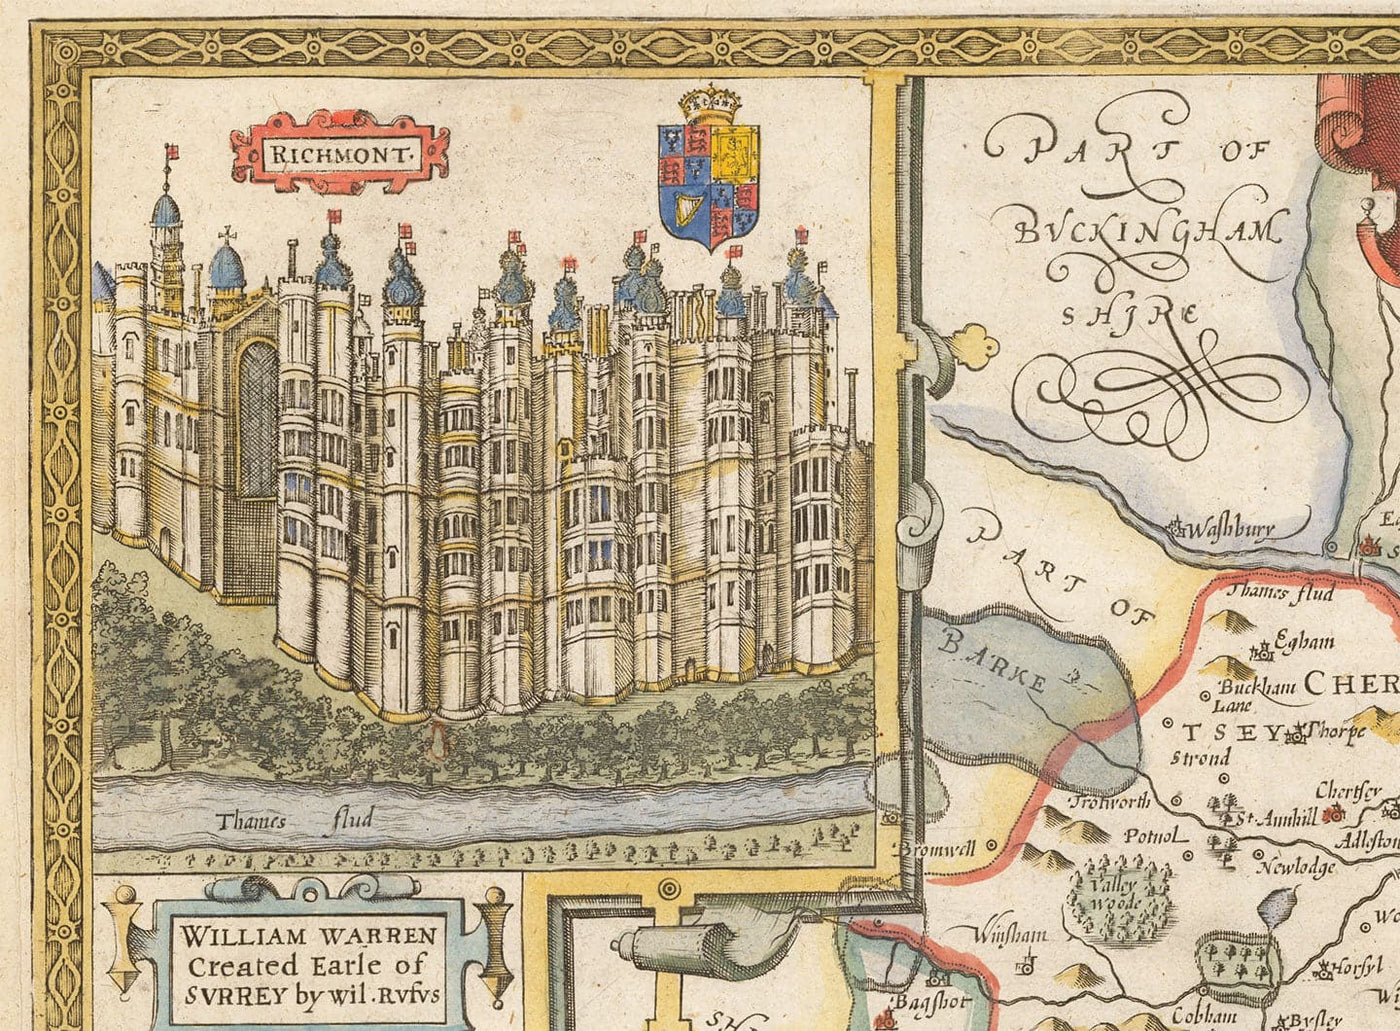 RICHMONT.
Thames flud
WILLIAM WARREN
Created Earle of
SVRREY by wil. RVFVS
PART OF
BVCKINGHAM
SHIRE
PART OF
BARKE
Washbury
Thames flud
Egham
Buckham
Lane
CHER
TSEY
Thorpe
Strond
Trotworth
Chertsey
St. Annhill
Potnol
Adlston
Newlodge
Bromwell
Valley
Woode
Winsham
Horsyl
Bagshot
Cobham
Bysley
SH